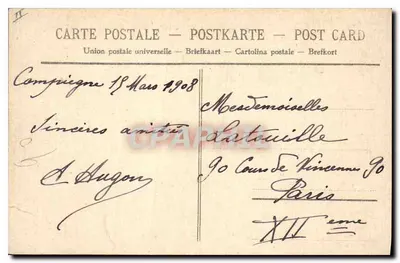 CARTE POSTALE – POSTKARTE – POST CARD
Union postale universelle – Briefkaart – Cartolina postale – Brefkort
Compiegne 15 Mars 1908
Sincères amitiés
A Hugon
Mesdemoiselles
Latouille
90 Cours de Vincennes 90
Paris
XII eme